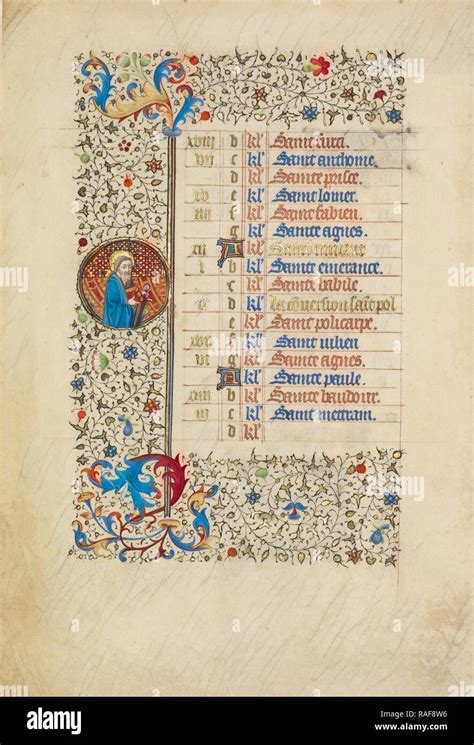 xviii b kl' Saint furci.
vii c kl' Saint anthoine.
d kl' Sainte prisce.
xv e kl' Saint lomer.
iiii f kl' Saint fabien.
g kl' Sainte agnes.
xii A kl' Saint vincent
i b kl' Sainte emerance.
c kl' Saint babile.
ix d kl' La conversion saint pol
e kl' Saint policarpe.
xvii f kl' Saint iulien
vi g kl' Sainte agnes.
A kl' Sainte paule.
xiiii b kl' Sainte baudour.
iii c kl' Saint metrain.
d kl'
alamy
Image ID: RAF8W6
www.alamy.com